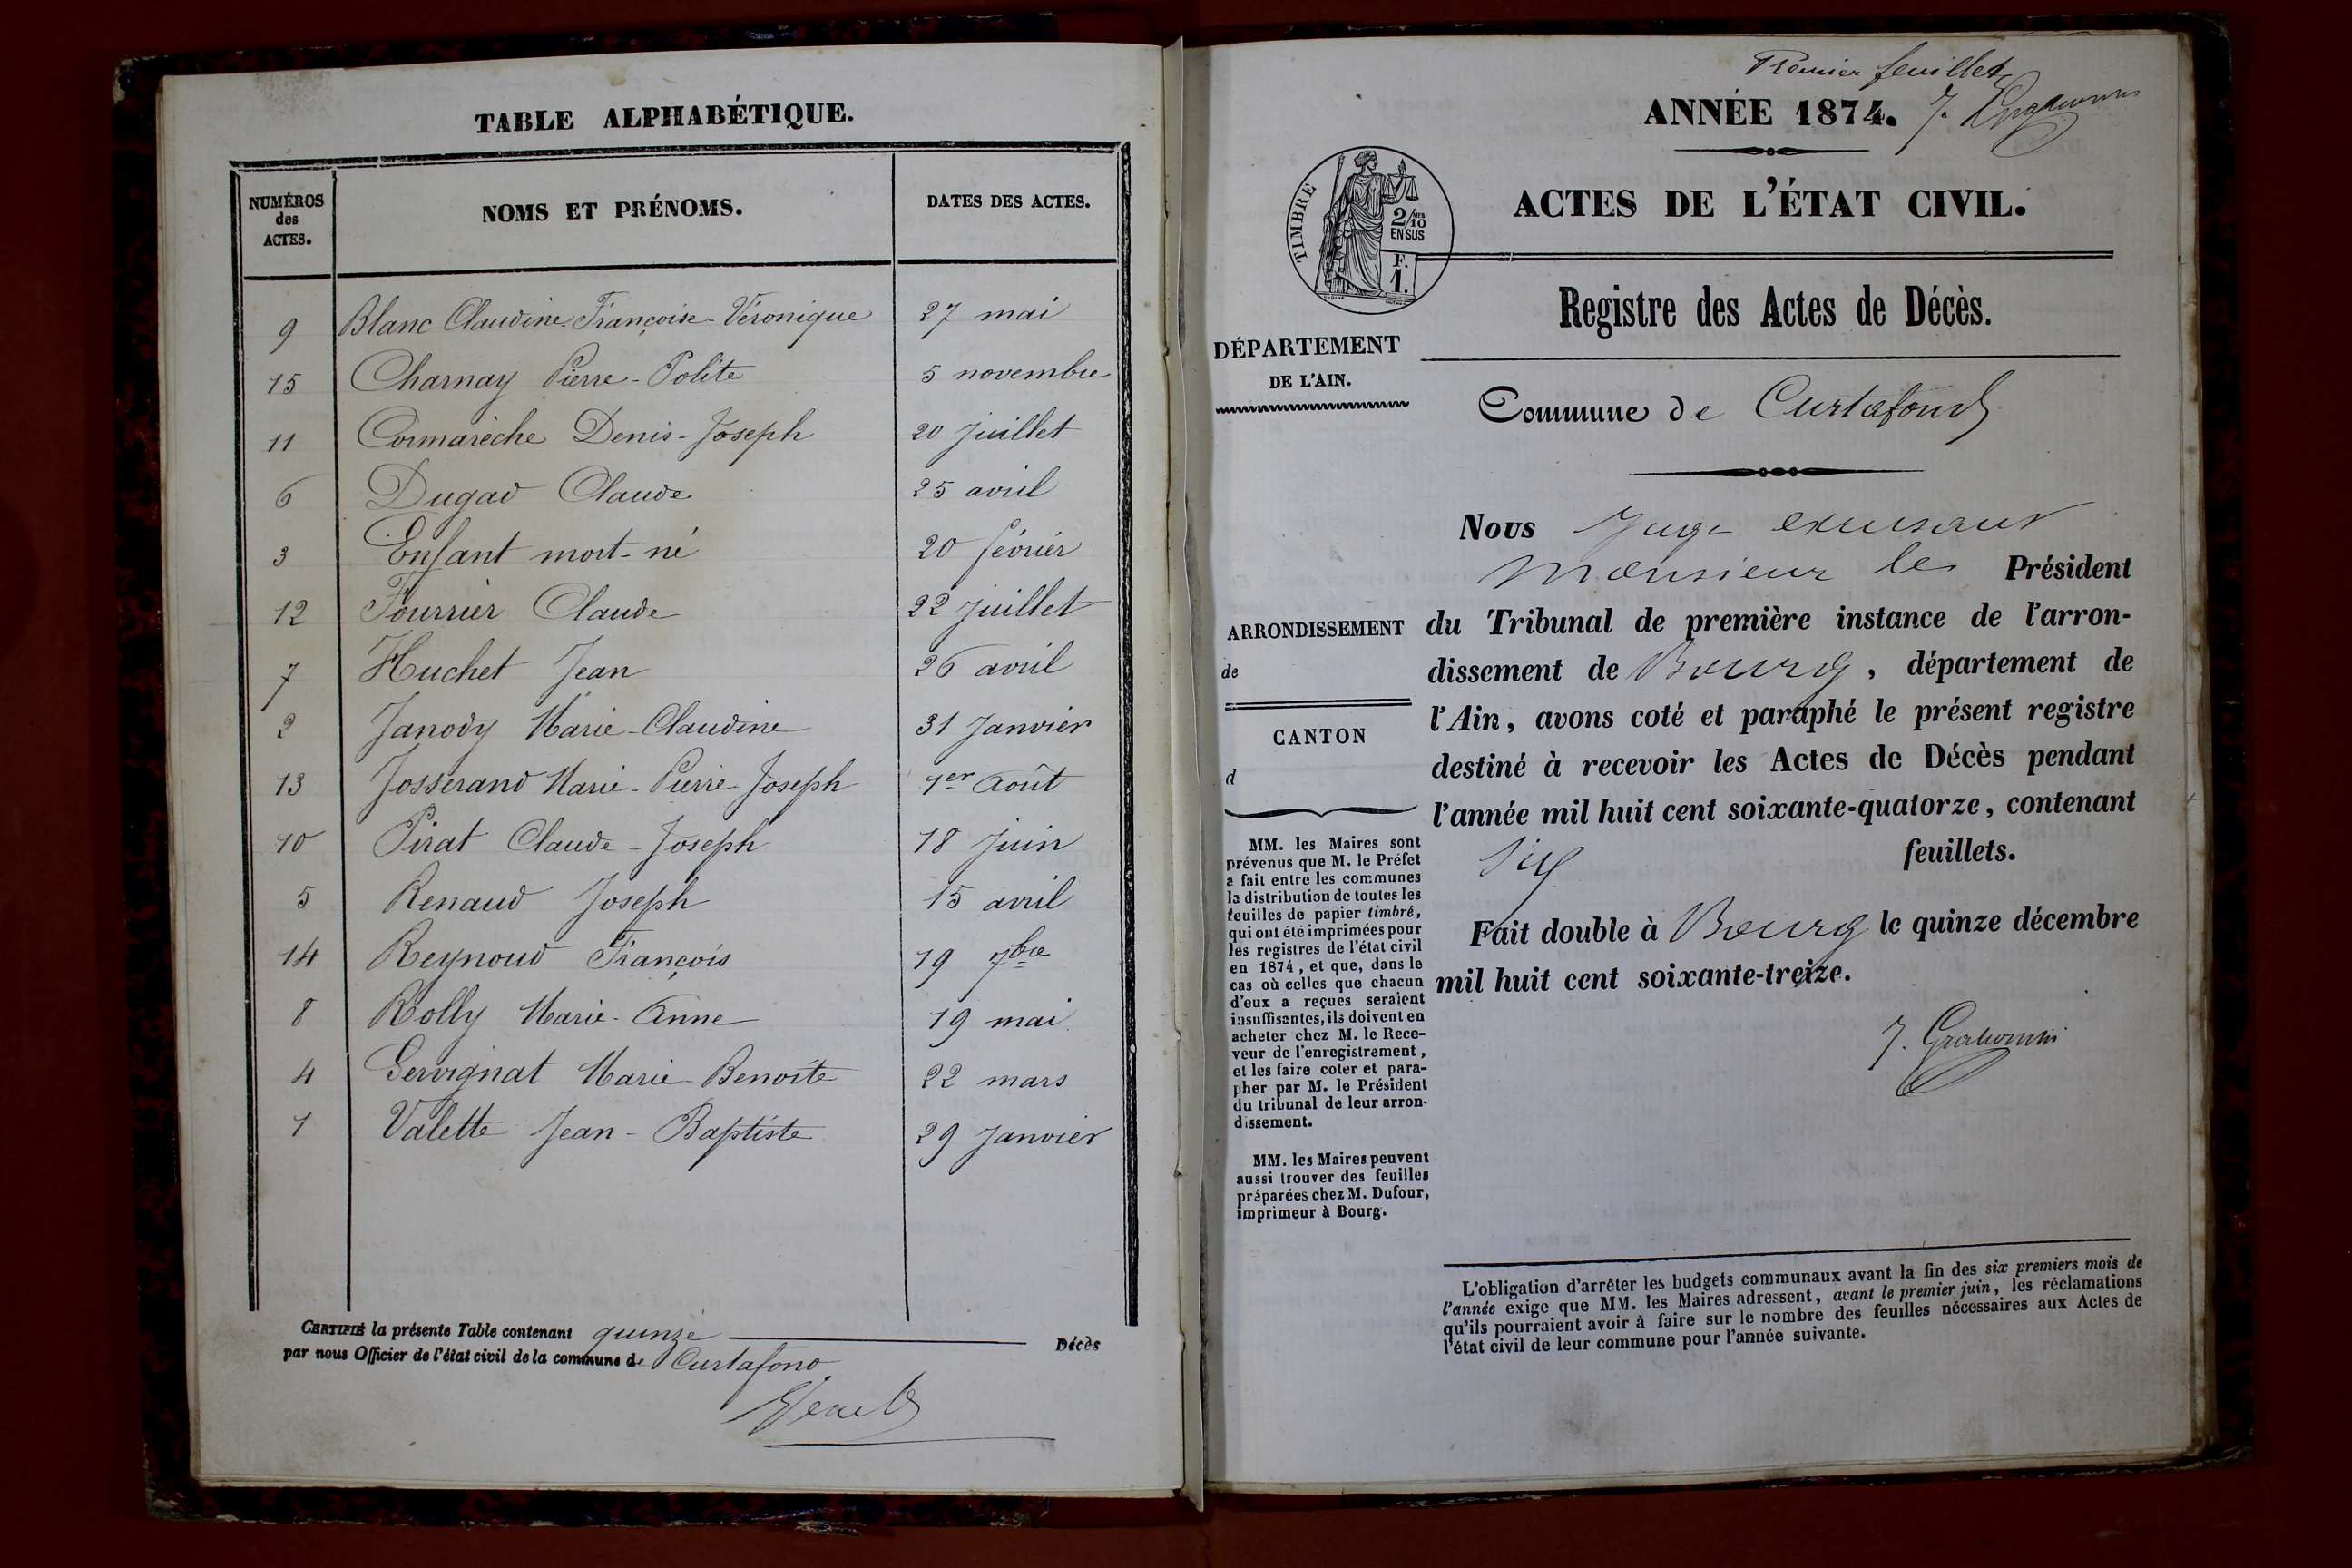 TABLE ALPHABÉTIQUE.
NUMÉROS des ACTES.
NOMS ET PRÉNOMS.
DATES DES ACTES.
9 Blanc Claudine Françoise-Véronique 27 mai
15 Charnay Pierre-Polite 5 novembre
11 Cormarèche Denis-Joseph 20 juillet
6 Dugad Claude 25 avril
3 Enfant mort-né 20 février
12 Fourrier Claude 22 juillet
7 Huchet Jean 26 avril
2 Janody Marie-Claudine 31 Janvier
13 Josserand Marie-Pierre Joseph 1er Août
10 Pirat Claude-Joseph 18 juin
5 Renaud Joseph 15 avril
14 Reynoud François 19 7bre
8 Rolly Marie-Anne 19 mai
4 Servignat Marie-Benoîte 22 mars
1 Valette Jean-Baptiste 29 Janvier
CERTIFIÉ la présente Table contenant quinze Décès
par nous Officier de l'état civil de la commune de Curtafond
Premier feuillet
ANNÉE 1874.
ACTES DE L'ÉTAT CIVIL.
TIMBRE
2/10
EN SUS
F.
1.
Registre des Actes de Décès.
DÉPARTEMENT
DE L'AIN.
Commune de Curtafond
Nous Juge
Monsieur le Président
ARRONDISSEMENT
de
CANTON
d
du Tribunal de première instance de l'arron-
dissement de Bourg, département de
l'Ain, avons coté et paraphé le présent registre
destiné à recevoir les Actes de Décès pendant
l'année mil huit cent soixante-quatorze, contenant
six feuillets.
Fait double à Bourg le quinze décembre
mil huit cent soixante-treize.
MM. les Maires sont
prévenus que M. le Préfet
a fait entre les communes
la distribution de toutes les
feuilles de papier timbré,
qui ont été imprimées pour
les registres de l'état civil
en 1874, et que, dans le
cas où celles que chacun
d'eux a reçues seraient
insuffisantes, ils doivent en
acheter chez M. le Rece-
veur de l'enregistrement,
et les faire coter et para-
pher par M. le Président
du tribunal de leur arron-
dissement.
MM. les Maires peuvent
aussi trouver des feuilles
préparées chez M. Dufour,
imprimeur à Bourg.
L'obligation d'arrêter les budgets communaux avant la fin des six premiers mois de
l'année exige que MM. les Maires adressent, avant le premier juin, les réclamations
qu'ils pourraient avoir à faire sur le nombre des feuilles nécessaires aux Actes de
l'état civil de leur commune pour l'année suivante.